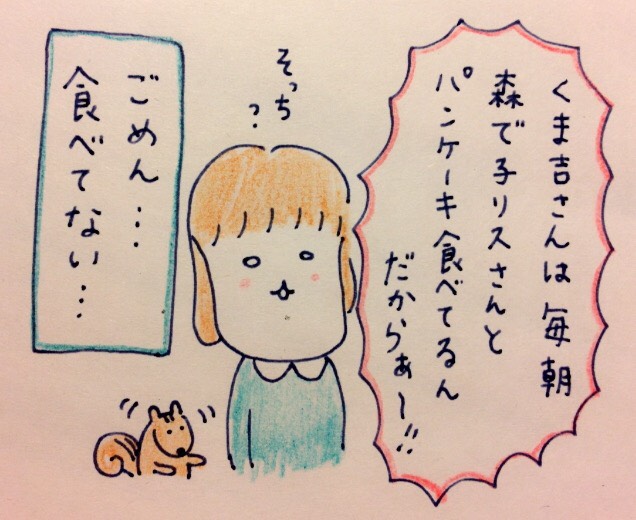 くま吉さんは毎朝
森で子リスさんと
パンケーキ食べてるん
だからぁ〜!!
そっち
?
ごめん…
食べてない…